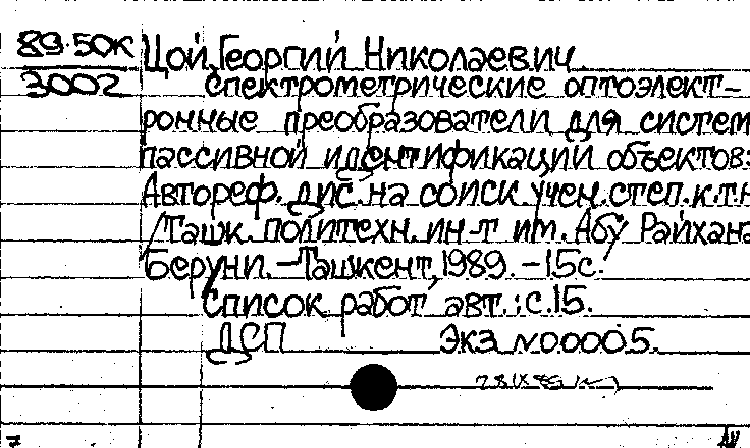 89-50К Цой, Георгий Николаевич
3002 Спектрометрические оптоэлект-
ронные преобразователи для систем
пассивной идентификации объектов:
Автореф. дис. на соиск. учен. степ. к.т.н
/Ташк. политехн. ин-т им. Абу Райхана
Беруни. – Ташкент, 1989. – 15с.
Список работ авт.: с.15.
ДСП Экз №00005.
7